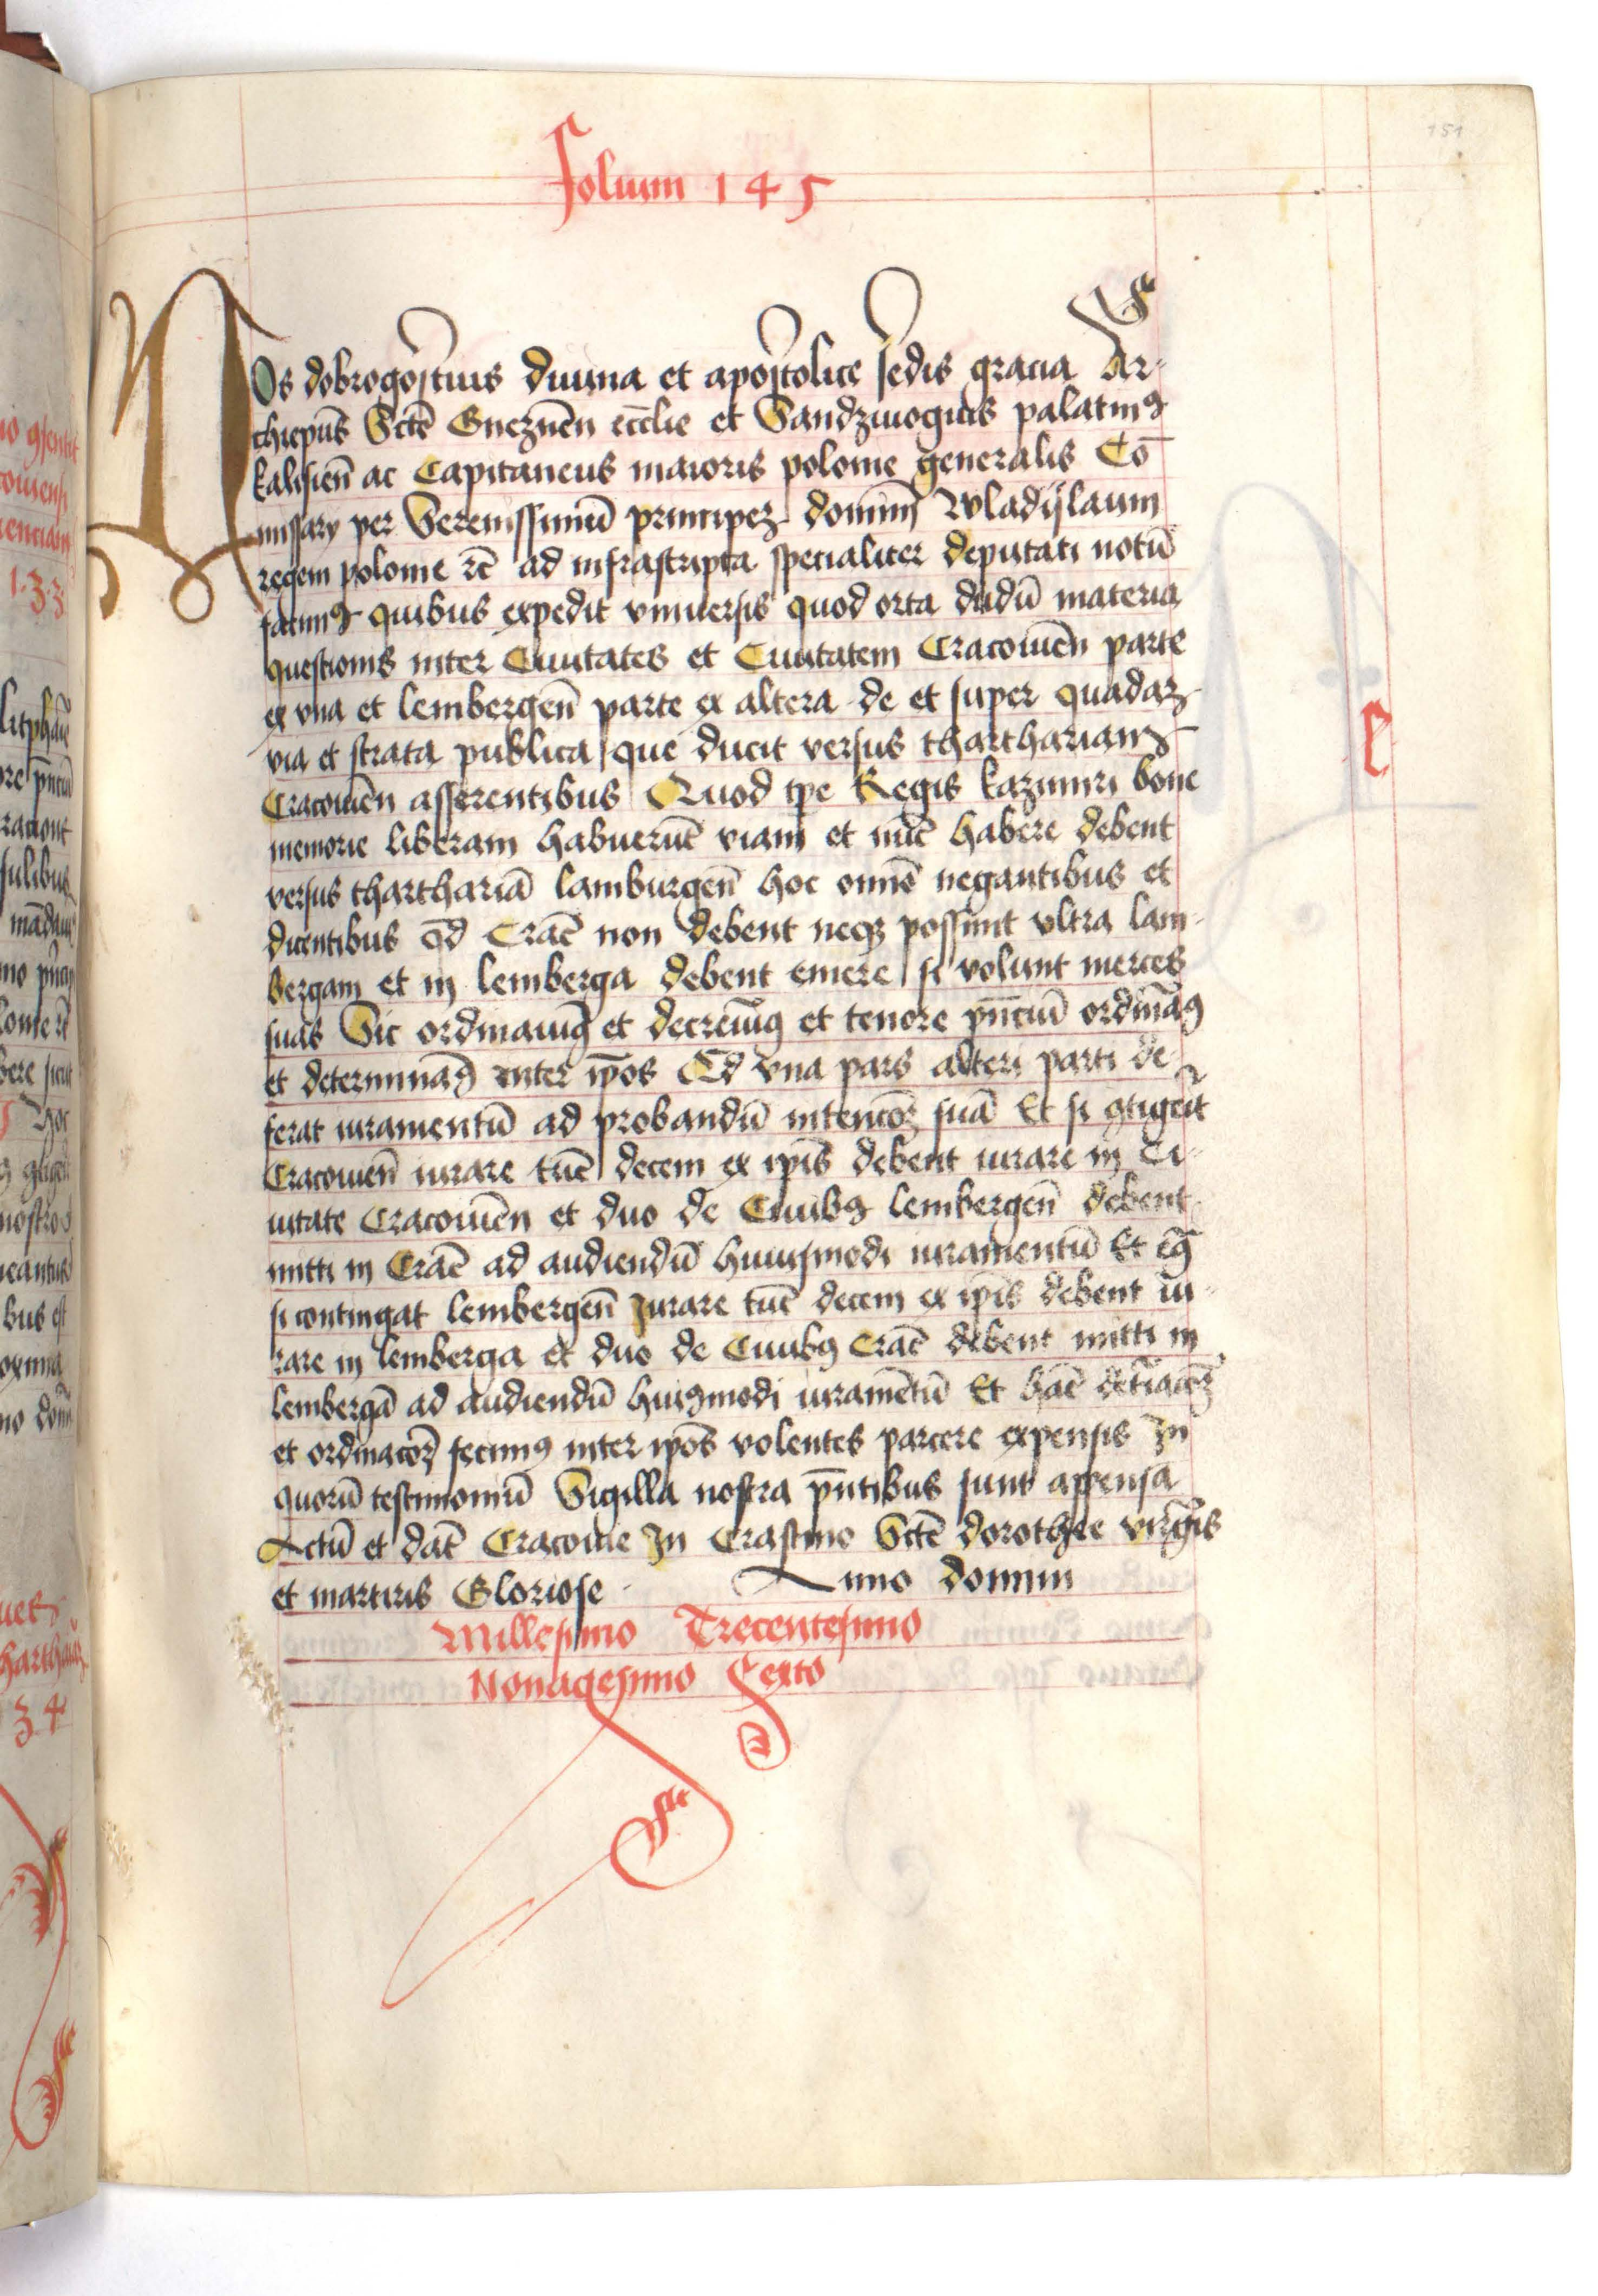 151
Folium 145
Nos dobrogostius diuina et apostolice sedis gracia Ar-
chiepūs Sctē Gneznēn ecclie et Sandziuogius palatinꝰ
kalisien̄ ac Capitaneus maioris polonie generalis Cō
missarij per Serenissimū principeꝫ dominū Wladislaum
regem polonie rc̄ ad infrascripta specialiter deputati notū
facimꝰ quibus expedit vniuersis quod orta dudū materia
questionis inter Ciuitates et Ciuitatem Cracouiēn parte
ex vna et lembergen̄ parte ex altera de et super quadaꝫ
via et strata publica que ducit versus tharthariam
Cracouiēn asserentibus Quod tpe Regis kazimiri bone
memorie liberam habuerūt viam et nūc habere debent
versus tharthariā lamburgen̄ hoc omnē negantibus et
dicentibus qd̄ Crac̄ non debent neqꝫ possunt vltra lam-
bergam et in lemberga debent emere si volunt merces
suas Sic ordinauimꝰ et decreuimꝰ et tenore pn̄ciū ordinamꝰ
et determinamꝰ inter ip̄os Qd̄ vna pars alteri parti de-
ferat iuramentū ad probandū intencōꝫ suā Et si ꝯtigerit
Cracouien̄ iurare tūc decem ex ip̄is debent iurare in Ci-
uitate Cracouiēn et duo de Ciuibꝰ lembergen̄ debent
mitti in Crac̄ ad audiendū huiusmodi iuramentū Et eqꝫ
si contingat lembergen̄ Jurare tūc decem ex ip̄is debent iu-
rare in lemberga et duo de Ciuibꝰ Crac̄ debent mitti in
lembergā ad audiendū huiꝰmodi iuramētū Et hāc
et ordinacōꝫ fecimꝰ inter ip̄os volentes parcere expensis In
quorū testimoniū Sigilla nostra pn̄tibus sunt appensa
Actū et dat̄ Cracouie In Crastino Sctē dorothee virgīs
et martiris Gloriose Anno domini
Millesimo Trecentesimo
Nonagesimo Sexto